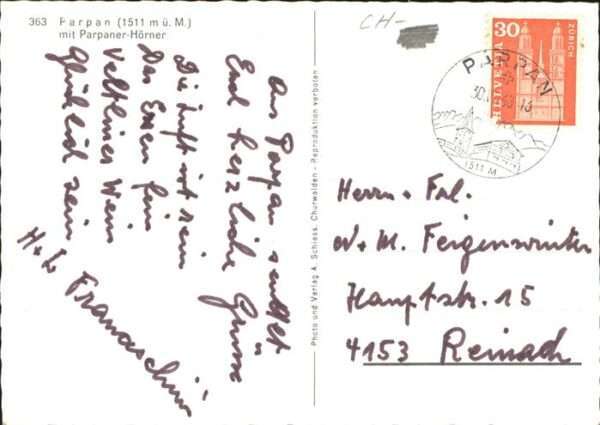 363 Parpan (1511 m ü. M.)
mit Parpaner-Hörner
Aus Parpan sendet
Euch herzliche Grüsse
Die Luft ist rein
Das Essen fein
Veltliner Wein
glücklich sein
H. + L. Franceschini
Photo und Verlag A. Schless, Churwalden - Reproduktion verboten
CH-
30
HELVETIA
ZÜRICH
PARPAN
1511 M
Herrn + Frl.
N + M. Feigenwinter
Hauptstr. 15
4153 Reinach